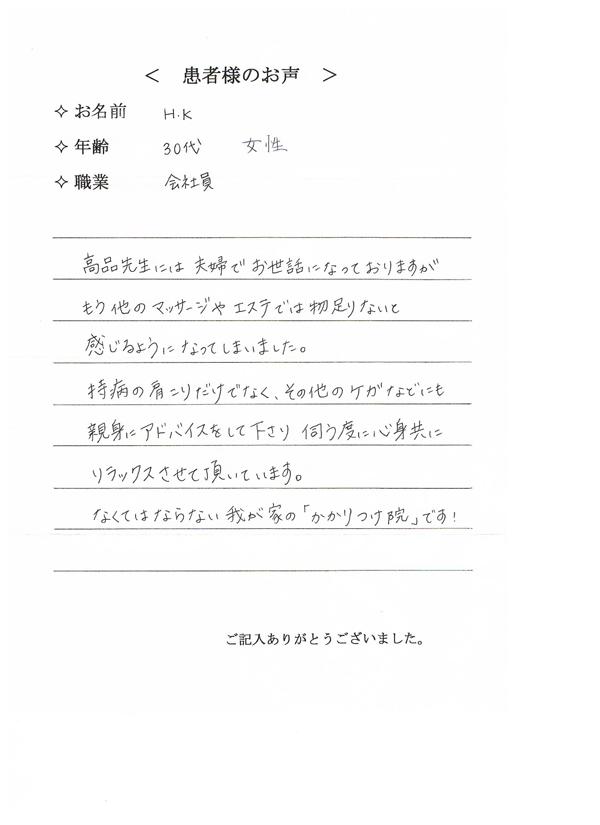 ＜ 患者様のお声 ＞
✧ お名前 H.K
✧ 年齢 30代 女性
✧ 職業 会社員
高品先生には 夫婦で お世話になっておりますが
もう他の マッサージや エステでは 物足りないと
感じるようになってしまいました。
持病の肩こりだけでなく、その他のケガなどにも
親身にアドバイスをして下さり 伺う度に心身共に
リラックスさせて頂いています。
なくてはならない 我が家の「かかりつけ院」です！
ご記入ありがとうございました。